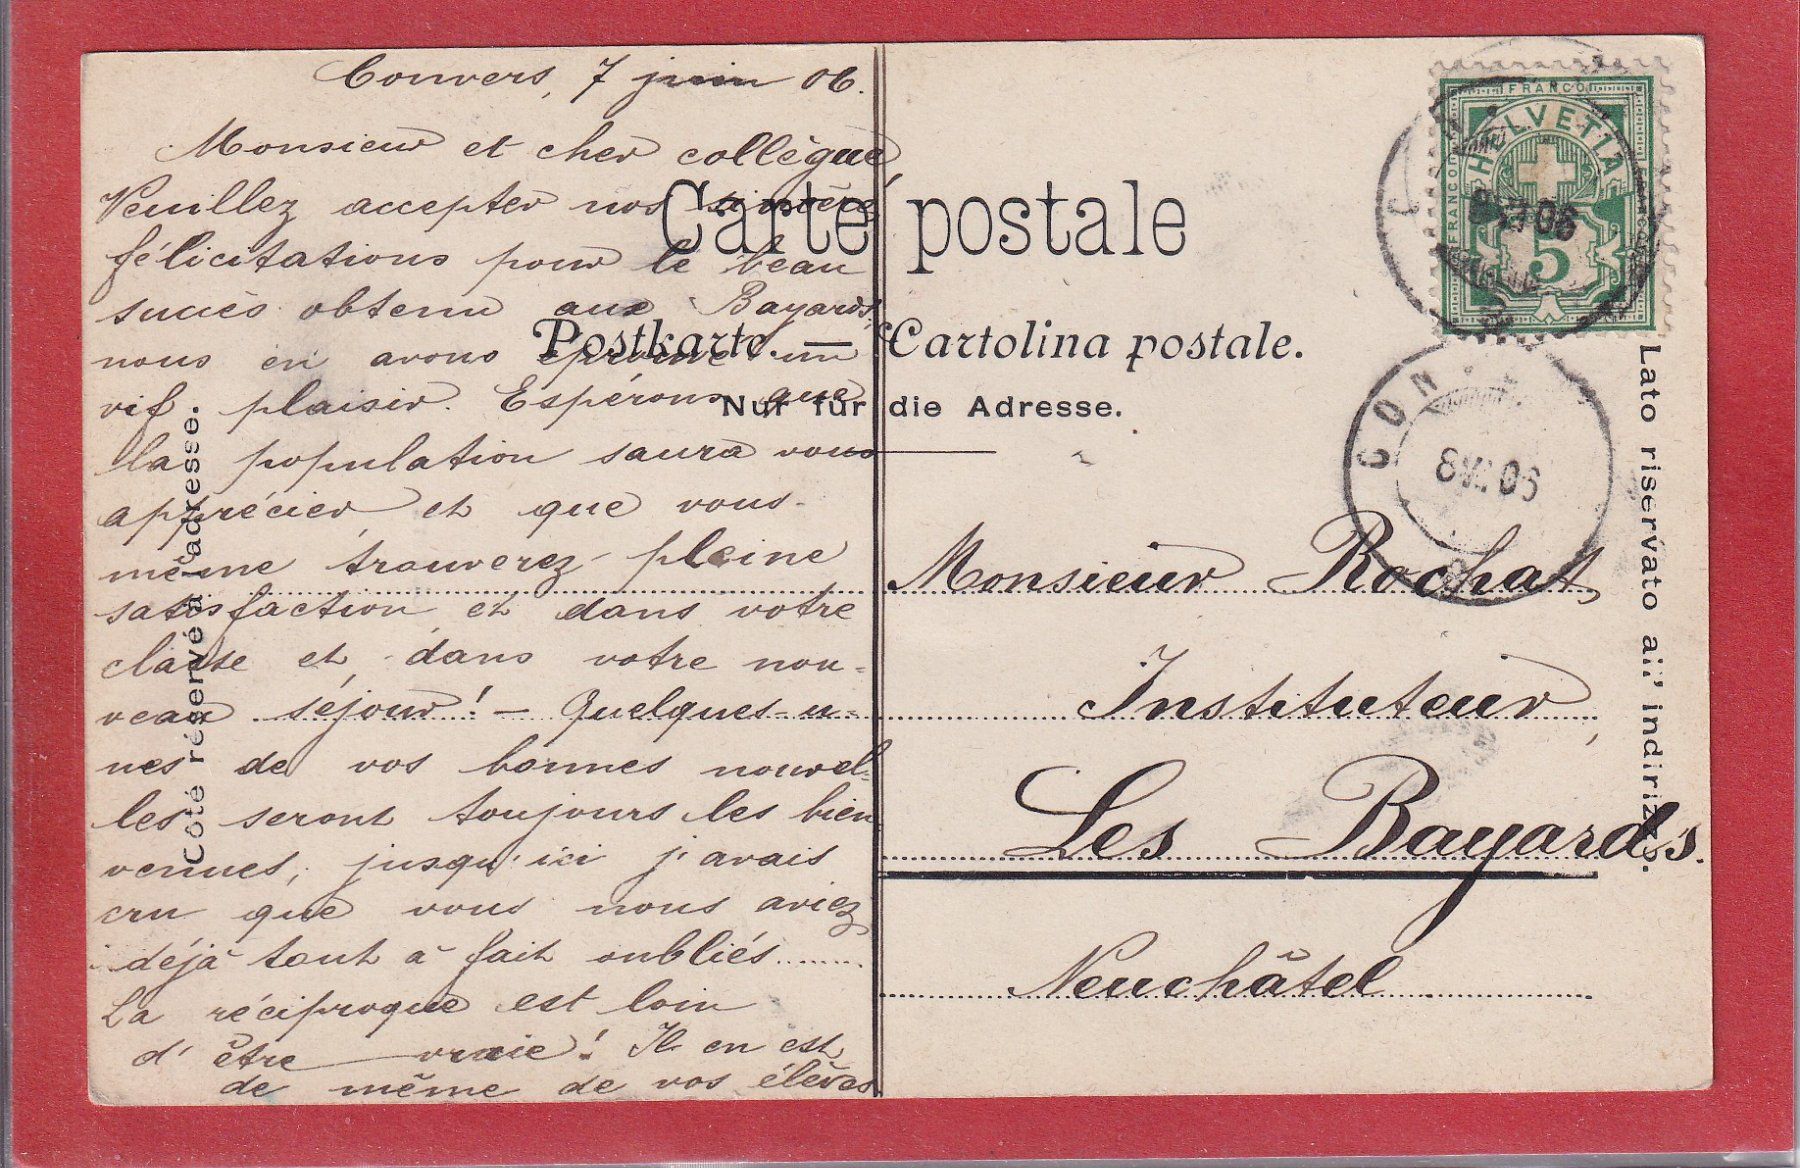 Convers, 7 juin 06.
Monsieur et cher collègue,
Veuillez accepter nos sincères
félicitations pour le beau
succès obtenu aux Bayards,
nous en avons éprouvé un
vif plaisir. Espérons que
la population saura vous
apprécier et que vous-
même trouverez pleine
satisfaction et dans votre
classe et dans votre nou-
veau séjour! — Quelques-u-
nes de vos bonnes nouvel-
les seront toujours les bien
venues, jusqu'ici j'avais
cru que vous nous aviez
déjà tout à fait oubliés........
La réciproque est loin
d'être vraie! Il en est
de même de vos élèves
Carte postale
Postkarte. — Cartolina postale.
Nur für die Adresse.
Côté réservé à l'adresse.
Lato riservato all' indirizzo.
Monsieur Rochat,
Instituteur,
Les Bayards.
Neuchâtel
FRANCO
FRANCO
HELVETIA
5
06
CON
8 VI 06